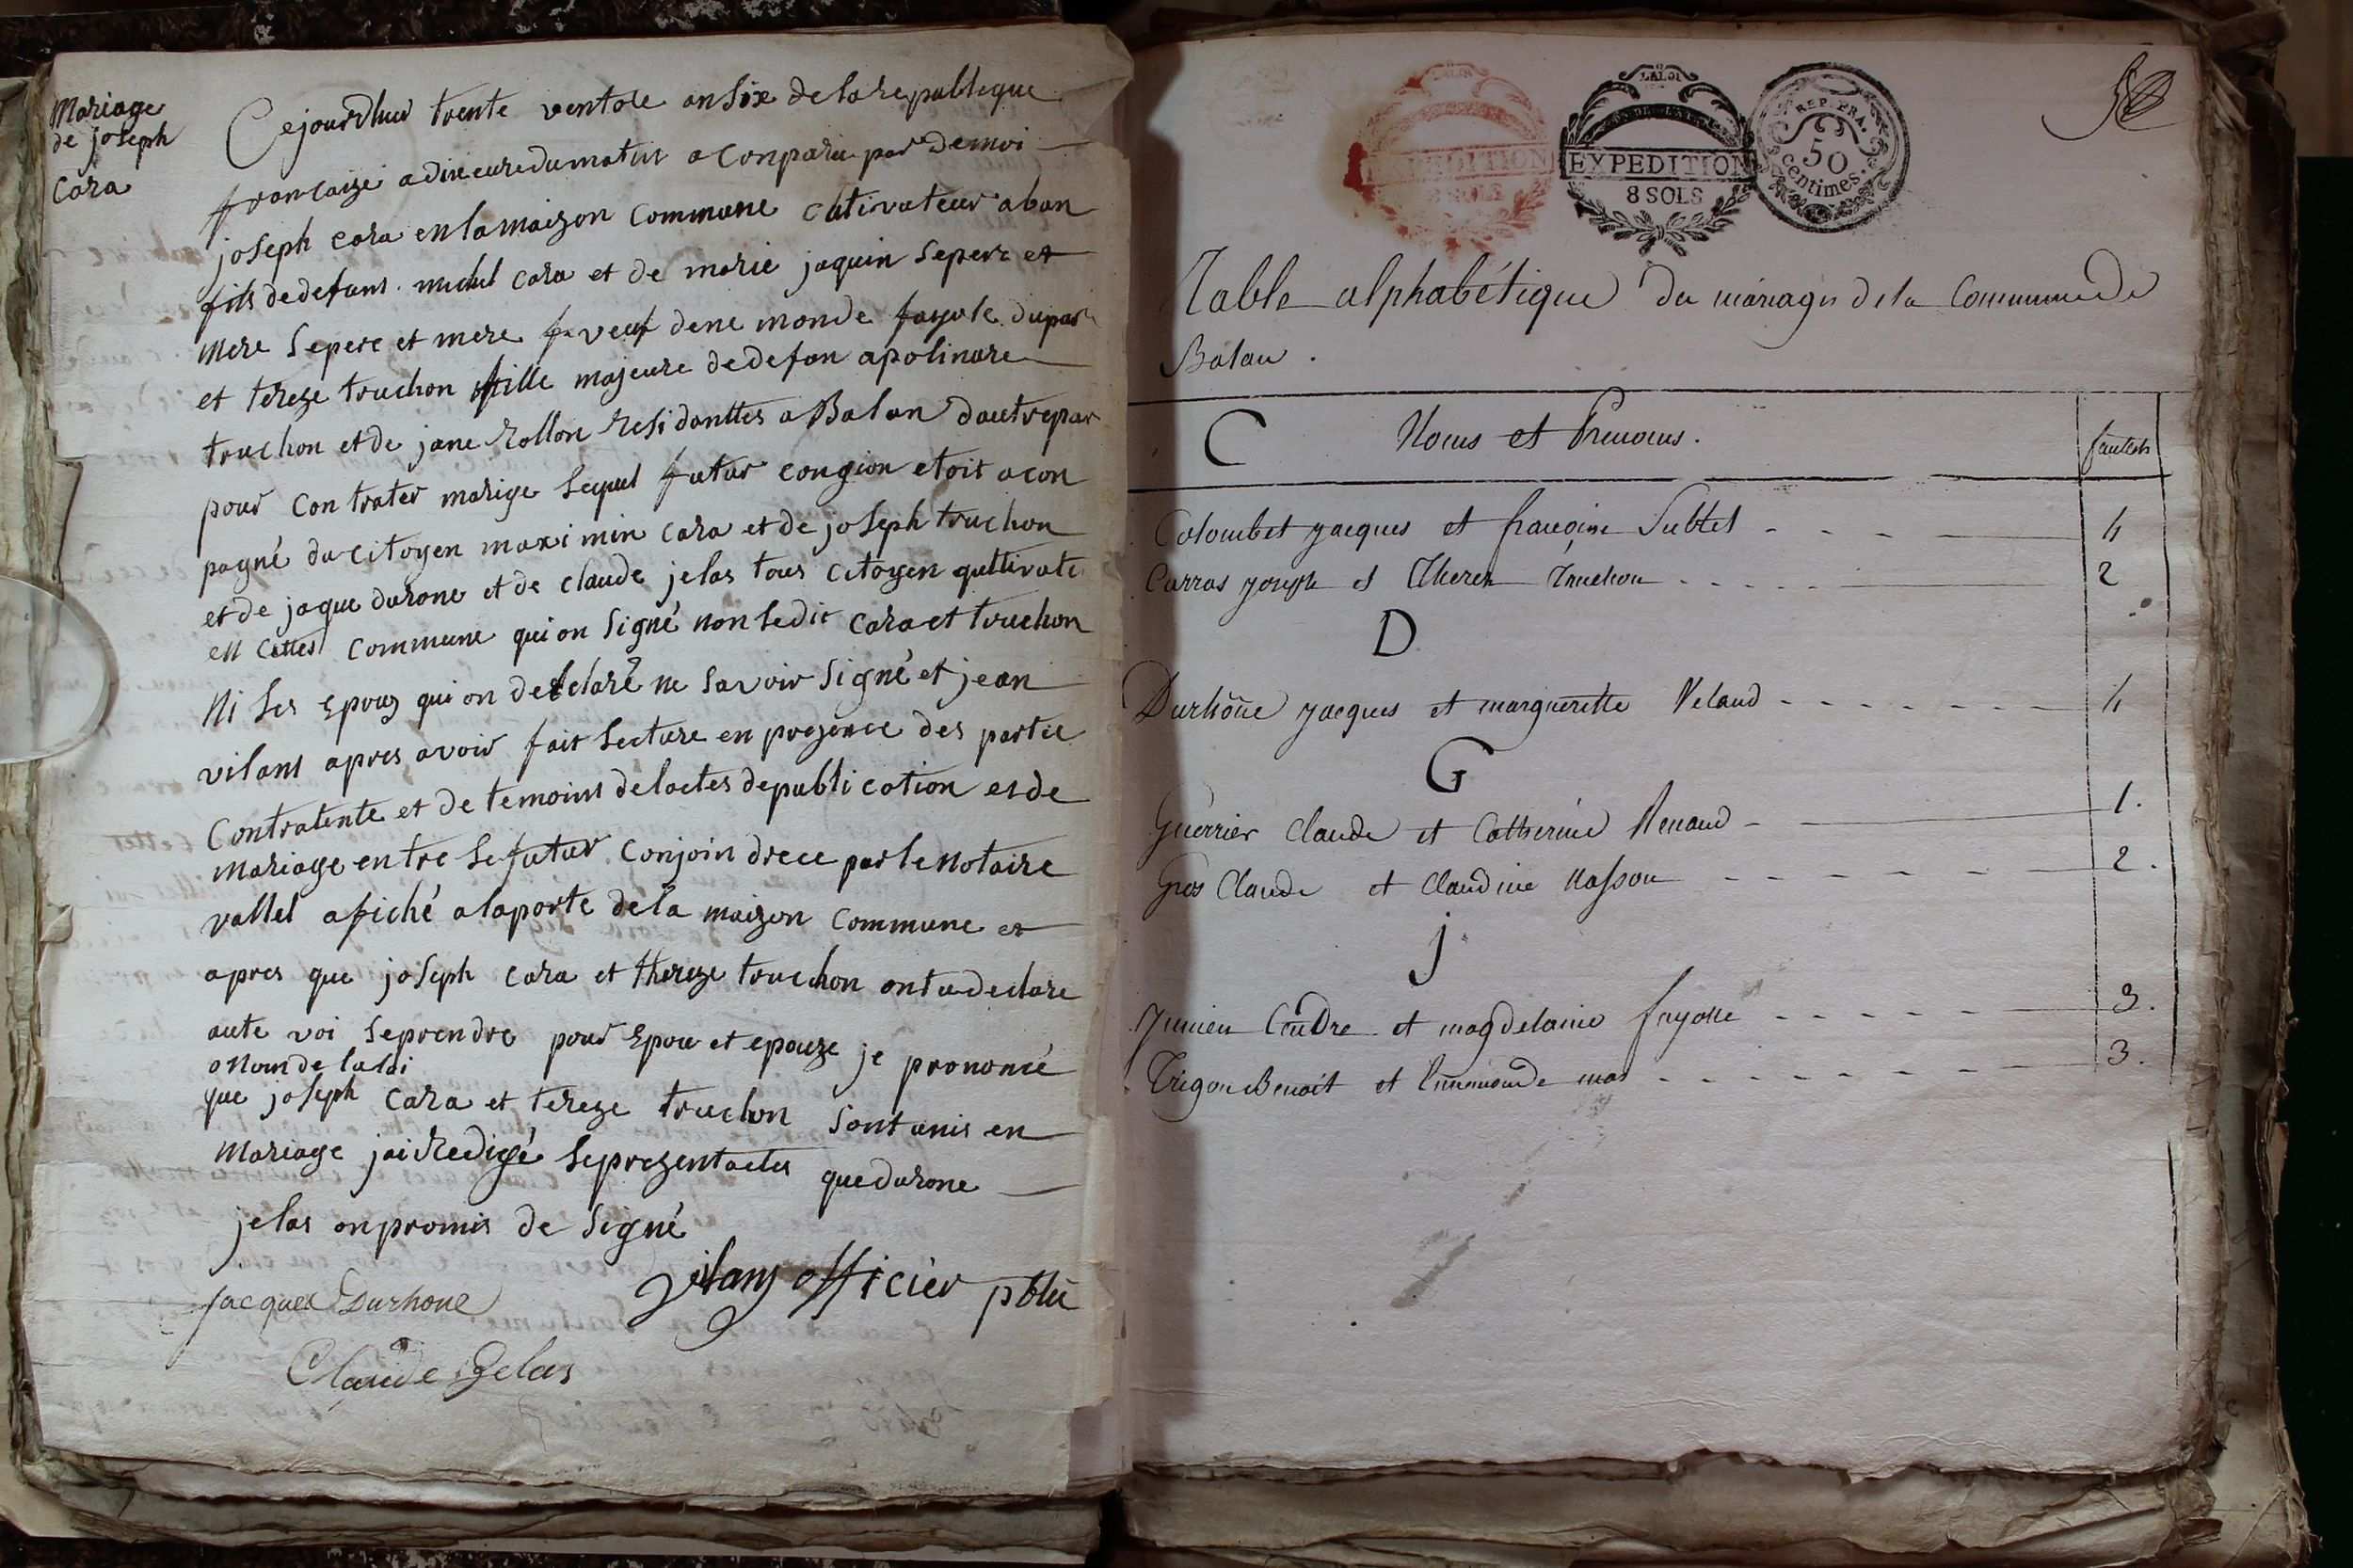 Mariage
de joseph
Cara
Cejourdhui trente ventose an six de la republique
francaize a dix eure du matin a conparu par demoi
joseph cara en la maizon commune cultivateur a balan
fils de defunt michel cara et de marie jaquin se pere et
mere se pere et mere veuf dene monde fayole dupar
et tereze truchon fille majeure de defan apolinare
truchon et de jane rollon residanttes a Balan dautre par
pour contrater marige lequel futur congion etoit acon
pagné du citoyen maximin cara et de joseph truchon
et de jaque durone et de claude jelas tous citoyen qultivate
en cettes commune qui on signé non ledit cara et truchon
ni les epouz qui on declaré ne savoir signé et jean
vilans apres avoir fait lecture en prezence des partie
contratente et de temoins de lactes de publication et de
mariage entre le futur conjoin drece par le notaire
vallel afiché a la porte de la maizon commune et
apres que joseph cara et thereze truchon ont u declare
aute voi se prendre pour epou et epouze je prononcé
o nom de la loi
que joseph cara et tereze truchon sont unis en
mariage jai redigé le prezent actes que durone
jelas on promis de signé
Jacques Durhone
vilans officier pblic
Claude Gelas
LA LOI
EXPEDITION
8 SOLS
LA LOI
EXPEDITION
8 SOLS
REP. FRA.
50
centimes.
Table alphabétique des mariages de la Commune de
Balan.
C Noms et Prenoms. feuillets
Colombet jacques et françoise Subtet 4
Carras joseph et Therese Truchon 2
D
Durhône jacques et marguerite Veland 4
G
Guerrier Claude et Catherine Renaud 1.
Gros Claude et Claudine Masson 2.
J
Junien Cendre et magdelaine fayolle 3.
Trigon Benoit et Ennemonde mas 3.